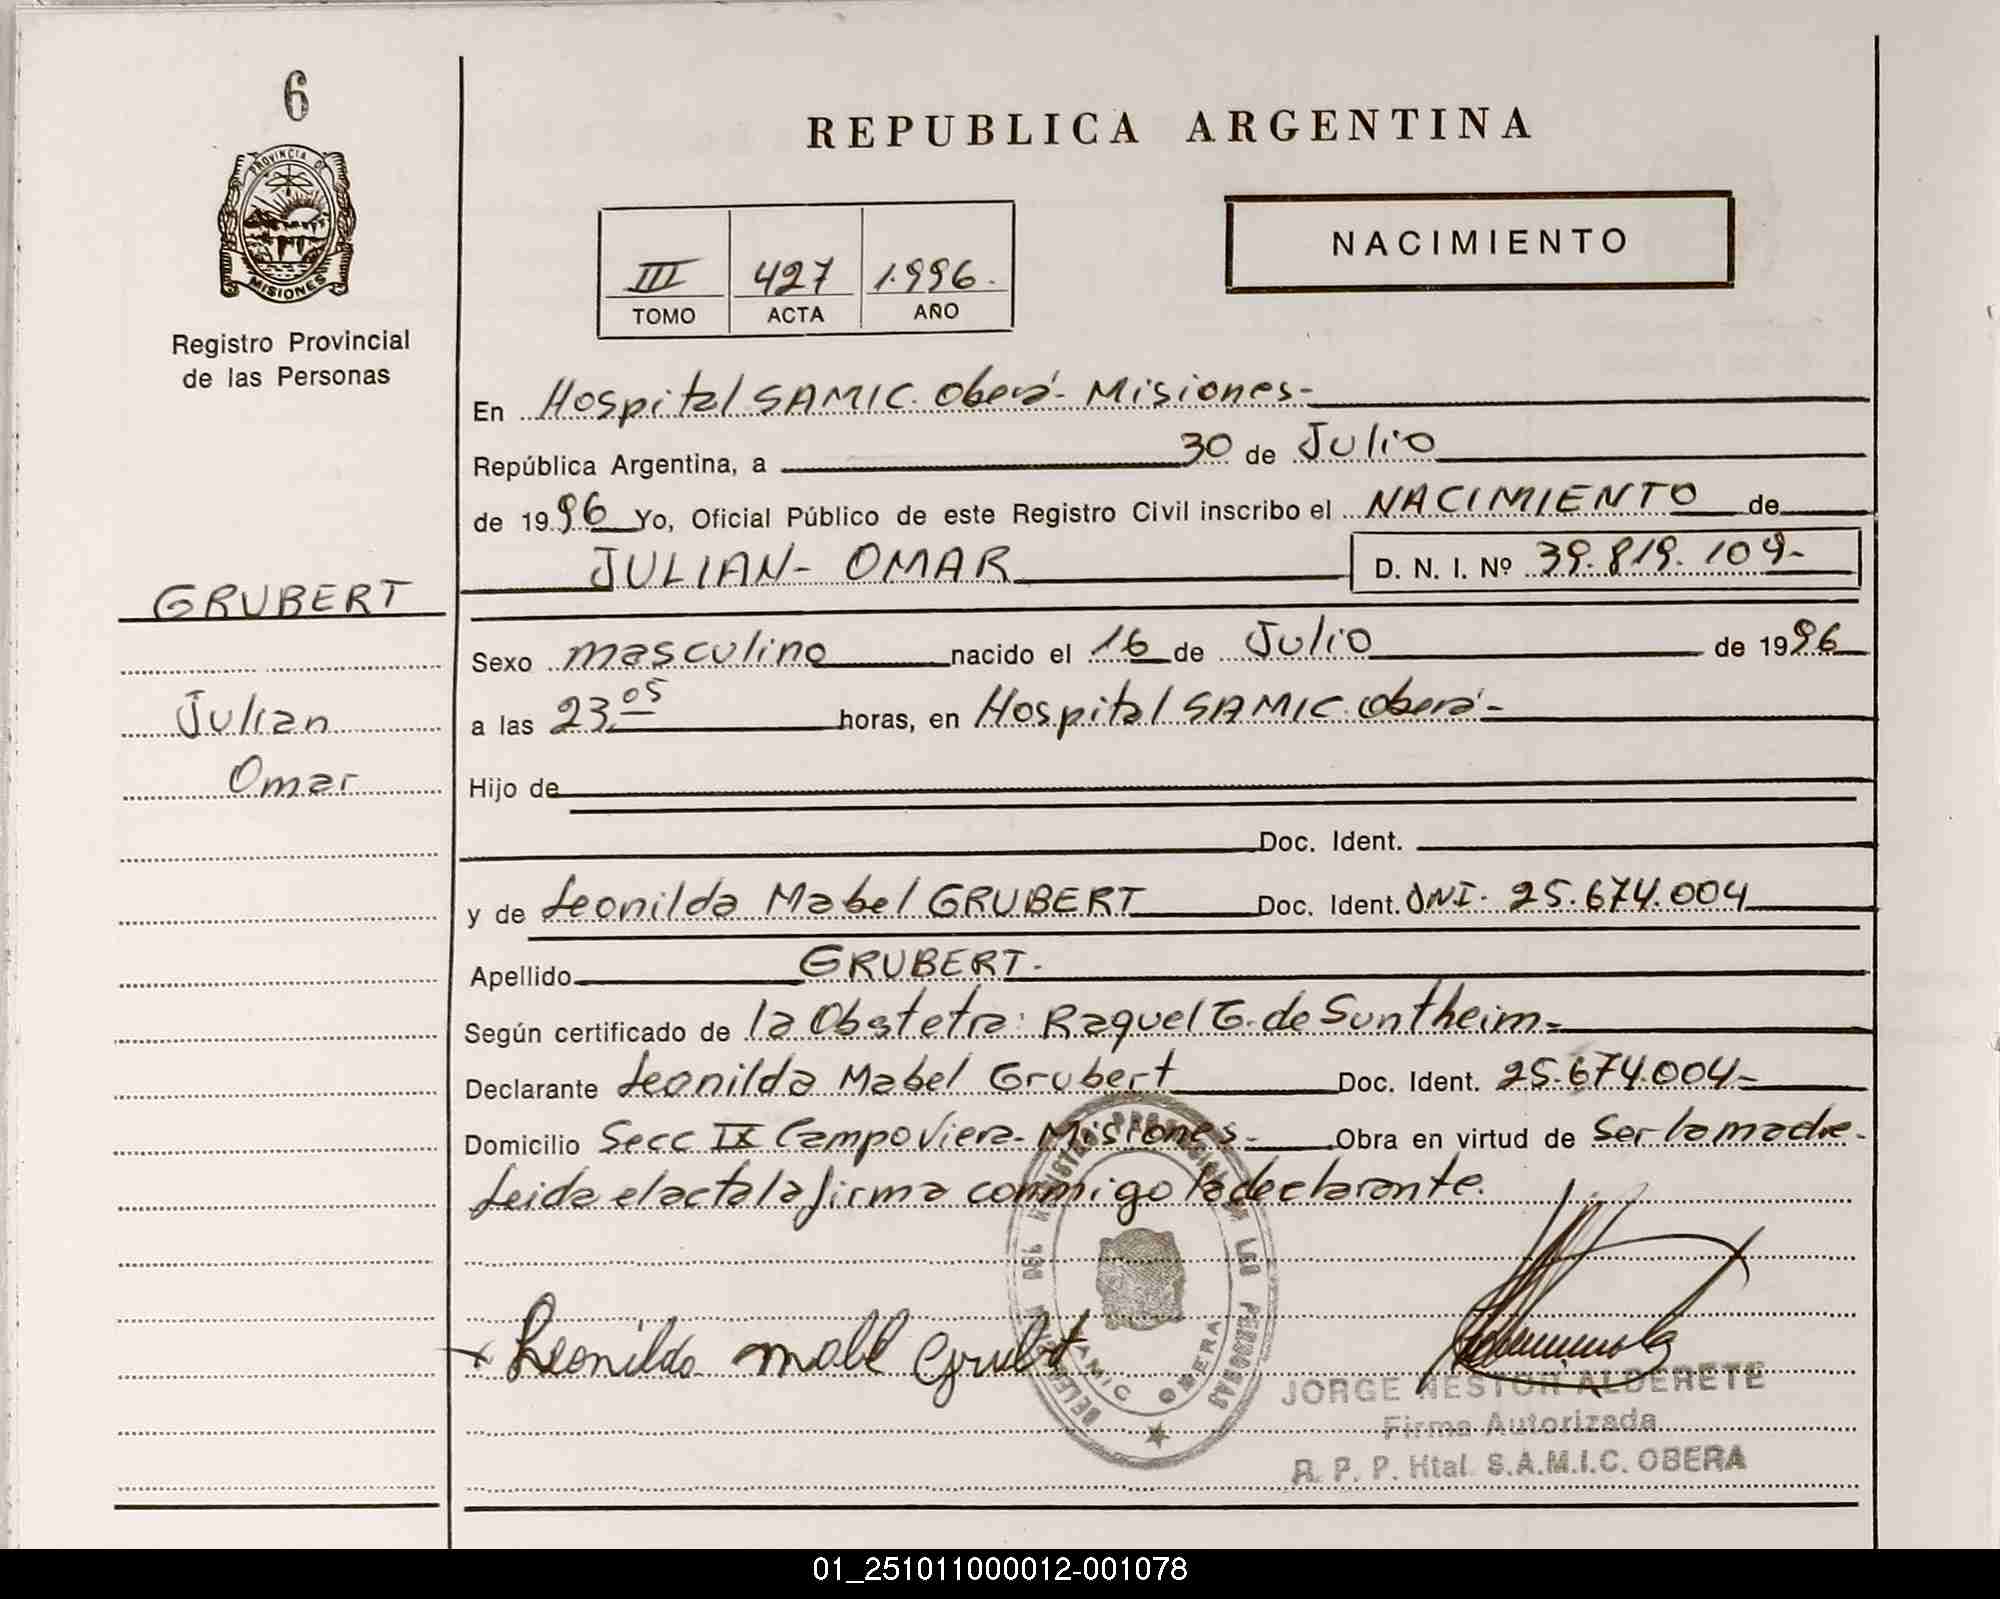 6
PROVINCIA DE
MISIONES
Registro Provincial
de las Personas
REPUBLICA ARGENTINA
III 427 1.996.
TOMO ACTA AÑO
NACIMIENTO
En Hospital SAMIC. Oberá- Misiones-
República Argentina, a 30 de Julio
de 1996 Yo, Oficial Público de este Registro Civil inscribo el NACIMIENTO de
JULIAN- OMAR D. N. I. Nº 39.819.109-
GRUBERT
Julian
Omar
Sexo masculino nacido el 16 de Julio de 1996
a las 23,05 horas, en Hospital SAMIC. Oberá-
Hijo de
Doc. Ident.
y de Leonilda Mabel GRUBERT Doc. Ident. DNI. 25.674.004
Apellido GRUBERT.
Según certificado de la Obstetra: Raquel G. de Suntheim.
Declarante Leonilda Mabel Grubert Doc. Ident. 25.674.004-
Domicilio Secc IX Campo Viera- Misiones- Obra en virtud de Ser la madre-
Leida el acta la firma conmigo la declarante.
Leonilda
JORGE NESTOR ALDERETE
Firma Autorizada
R. P. P. Htal. S.A.M.I.C. OBERA
DEL PERSONAS
SAMIC OBERA
01_251011000012-001078